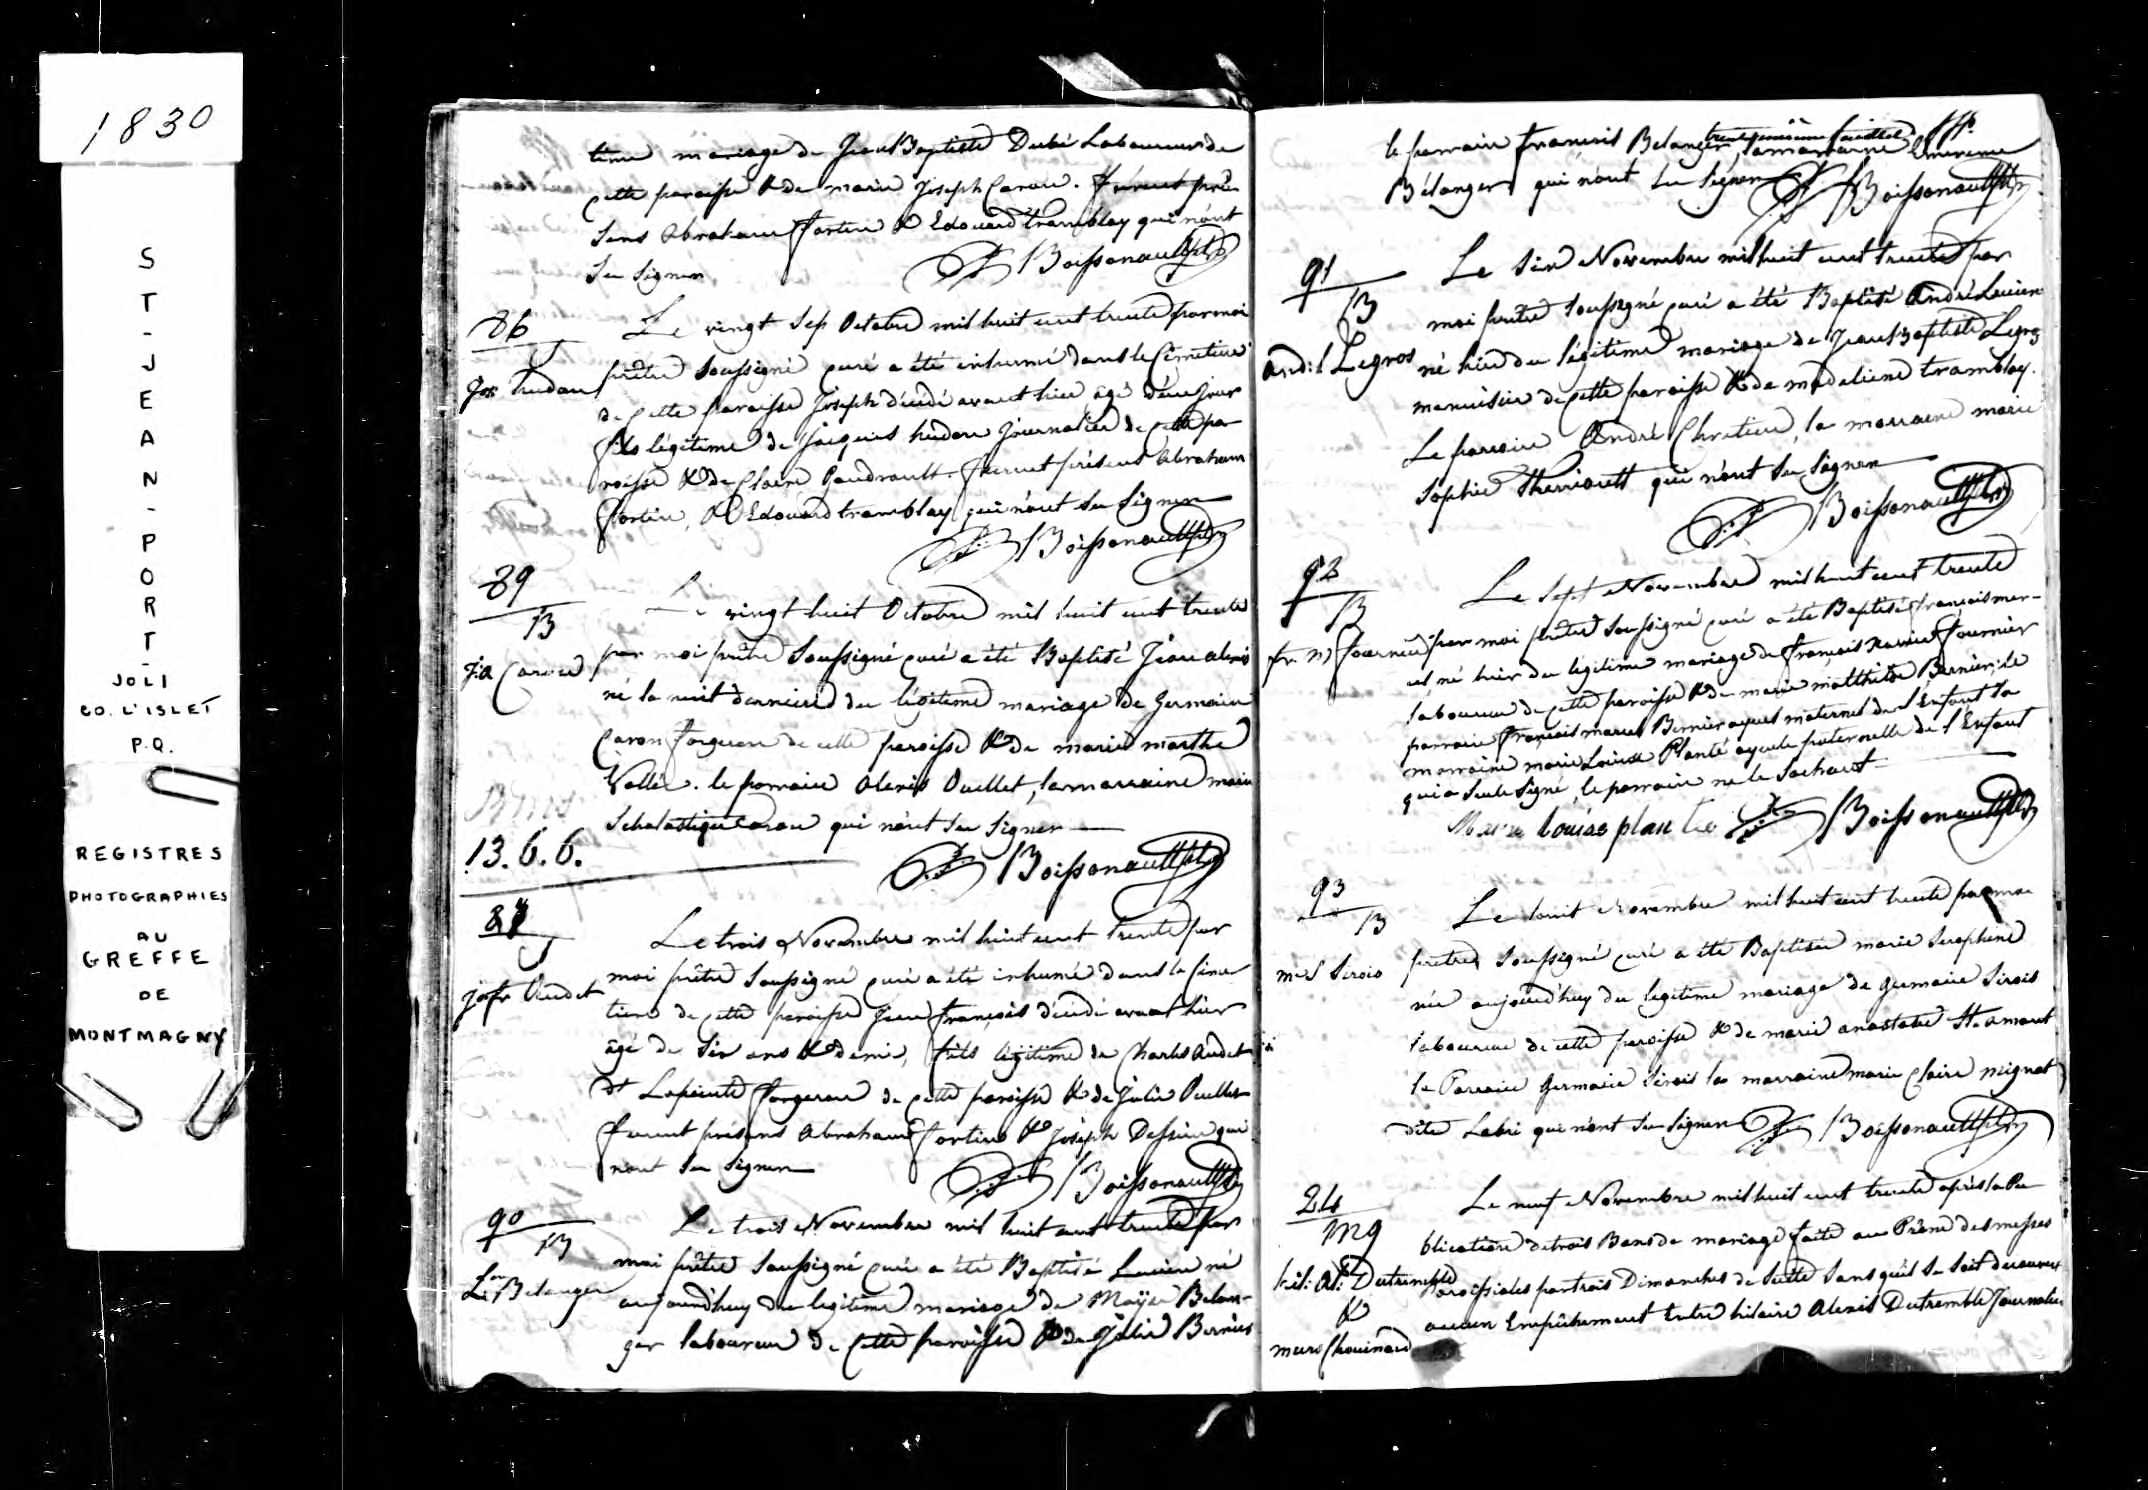 1830
ST-JEAN-PORT-
JOLI
CO. L'ISLET
P.Q.
REGISTRES
PHOTOGRAPHIES
AU
GREFFE
DE
MONTMAGNY
time mariage de Jean Baptiste Dubé Laboureur de
cette paroisse & de marie Joseph Caron. furent pré-
sens Abraham fortin & Edouard tramblay qui n'ont
Su Signer Boissonault ptre
86
S
Jos hudon
Le vingt Sep Octobre mil huit cent trente par moi
prêtre Soussigné curé a été inhumé dans le Cimetiere
de cette paroisse Joseph décédé avant hier âgé d'un jour
fils légitime de Jacques hudon Journalier de cette pa
roisse & de Claire Gaudrault. furent présens Abraham
fortin, & Edouard tramblay qui n'ont Su Signer
Boissonault ptre
89
B
J: A Caron
Le vingt huit Octobre mil huit cent trente
par moi prêtre Soussigné curé a été Baptisé Jean alexis
né la nuit derniere du légitime mariage de Germain
Caron forgeron de cette paroisse & de marie marthe
Vallée. le parrain Alexis Ouellet, la marraine marie
Scholastique Caron qui n'ont Su Signer
13.6.6.
Boissonault ptre
87
S
Jn fr Audet
Le trois Novembre mil huit cent trente par
moi prêtre Soussigné curé a été inhumé dans le Cime
tiere de cette paroisse Jean françois décédé avant hier
âgé de Six ans & demi, fils légitime de Charles Audet
dt Lapointe forgeron de cette paroisse & de Julie Ouellet
furent présens Abraham fortin & Joseph Dessein qui
nont Su Signer Boissonault ptre
90
B
Ln Belanger
Le trois Novembre mil huit cent trente par
moi prêtre Soussigné curé a été Baptisé Lucien né
aujourd'huy du legitime mariage de Moyse Belan-
ger laboureur de cette paroisse & de Julie Bernier
le parrain francois Belanger, la marraine Emerence
Bélanger qui n'ont Su Signer Boissonault ptre
91
B
And: L Legros
Le Six Novembre mil huit cent trente par
moi prêtre Soussigné curé a été Baptisé André Lucien
né hier du légitime mariage de Jean Baptiste Legros
menuisier de cette paroisse & de madeleine tramblay.
Le parrain André Chretien, la marraine marie
Sophie Therriault qui n'ont Su Signer
Boissonault ptre
92
B
fr. m) fournier
Le Sept Novembre mil huit cent trente
par moi prêtre Soussigné curé a été Baptisé francois mar-
cel né hier du légitime mariage de françois Xavier fournier
laboureur de cette paroisse & de marie matthilde Bernier; le
parrain françois marcel Bernier ayeul maternel de l'Enfant la
marraine marie Louise Planté ayeule paternelle de l'Enfant
qui a Seule Signé, le parrain ne le Sachant
Marie louise plante Boissonault ptre
93
B
m: S Sirois
Le huit Novembre mil huit cent trente par moi
prêtre Soussigné curé a été Baptisée marie Seraphine
née aujourd'huy du legitime mariage de Germain Sirois
laboureur de cette paroisse & de marie anastasie St. amant
le Parrain Germain Sirois la marraine marie Claire mignot
dite Labri qui n'ont Su Signer Boissonault ptre
24
Mg
hil: Al: Dutremble
&
Chouinard
Le neuf Novembre mil huit cent trente après la Pu
blication de trois Bans de mariage faite au Prône des messes
Paroissiales par trois Dimanches de Suite Sans qu'il Se Soit decouvert
aucun Empêchement Entre hilaire Alexis Dutremble Journalier